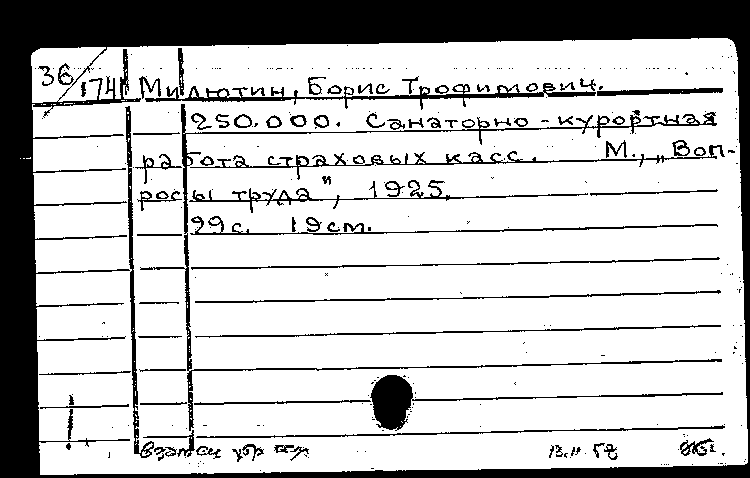 36/1741 Милютин, Борис Трофимович.
250.000. Санаторно-курортная
работа страховых касс. М., „Воп-
росы труда", 1925.
99с. 19см.
13.11.58